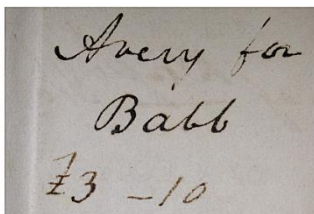 Avery for
Babb
£3 - 10